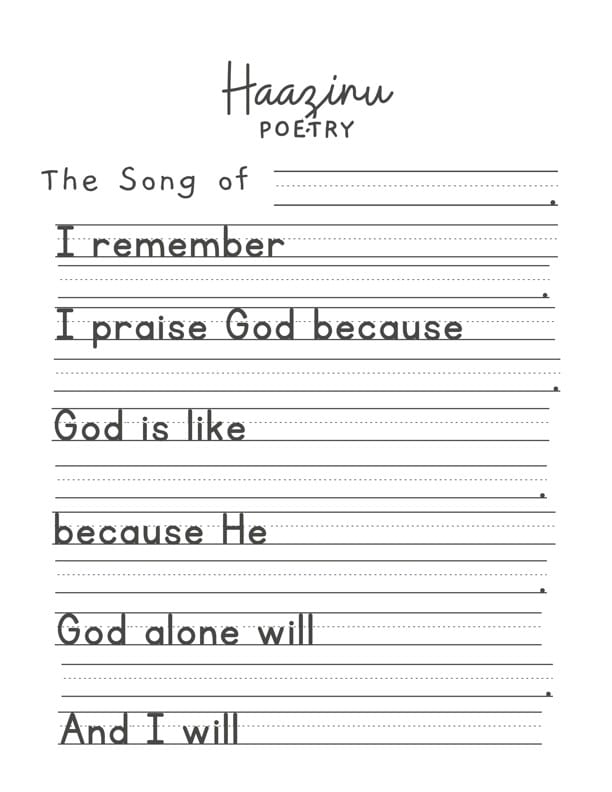 Haazinu
POETRY
The Song of .
I remember
.
I praise God because
.
God is like
.
because He
.
God alone will
.
And I will